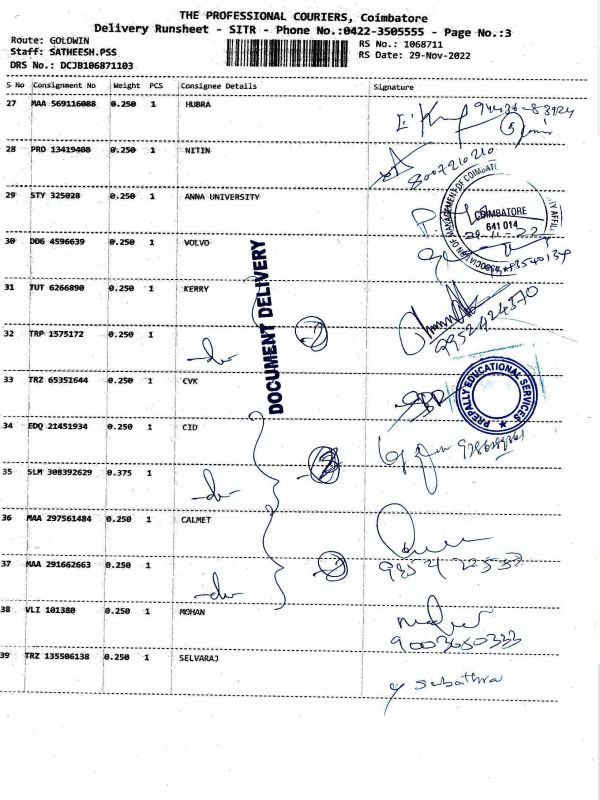 THE PROFESSIONAL COURIERS, Coimbatore
Delivery Runsheet - SITR - Phone No.:0422-3505555 - Page No.:3
Route: GOLDWIN
Staff: SATHEESH.PSS
DRS No.: DCJB106871103
RS No.: 1068711
RS Date: 29-Nov-2022
S No Consignment No Weight PCS Consignee Details Signature
27 MAA 569116088 0.250 1 HUBRA
28 PRO 13419408 0.250 1 NITIN
8007210210
29 STY 325028 0.250 1 ANNA UNIVERSITY
COIMBATORE
641 014
29-11-22
30 DDG 4596639 0.250 1 VOLVO
31 TUT 6266890 0.250 1 KERRY
9952424570
DOCUMENT DELIVERY
32 TRP 1575172 0.250 1
-do-
33 TRZ 65351644 0.250 1 CVK
PREPALLY EDUCATIONAL SERVICES
34 EDQ 21451934 0.250 1 CID
35 SLM 308392629 0.375 1
-do-
36 MAA 297561484 0.250 1 CALMET
37 MAA 291662663 0.250 1
-do-
38 VLI 101380 0.250 1 MOHAN
9003650333
39 TRZ 135506138 0.250 1 SELVARAJ
Sabathra